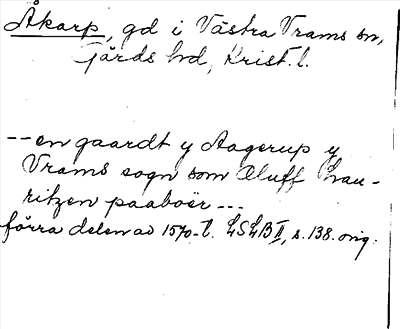 Åkarp, gd i Västra Vrams sn,
Gärds hd, Krist. l.
-- en gaardt y Aagerup y
Vrams sogn som Oluff Lau-
ritzen paaboër ---
förra delen av 1570-t. LSLB II, s. 138. orig.